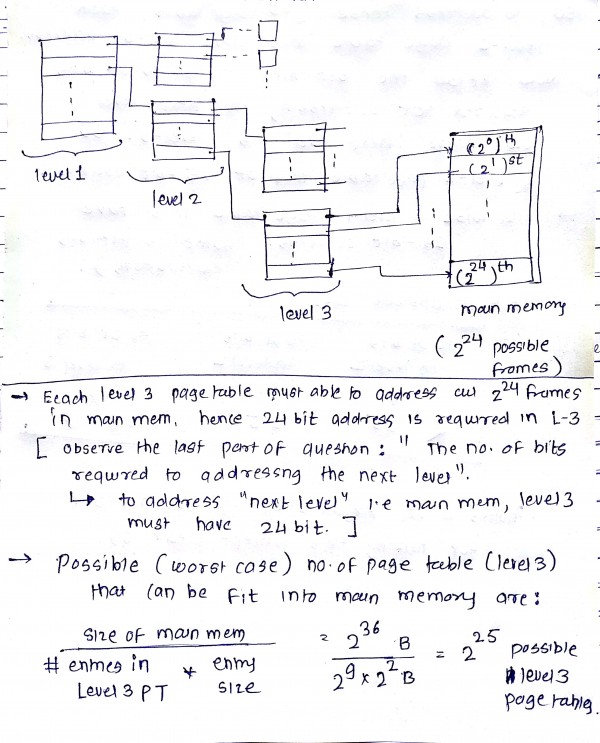 (2⁰)th
(2¹)st
(2²⁴)th
level 1
level 2
level 3
main memory
(2²⁴ possible
frames)
→ Eeach level 3 page table must able to address all 2²⁴ frames
in main mem, hence 24 bit address is required in L-3
[ observe the last part of question : " The no. of bits
required to addressng the next level".
↳ to address "next level" i.e main mem, level 3
must have 24 bit. ]
→ Possible (worst case) no. of page table (level 3)
that can be fit into main memory are :
size of main mem / # entries in Level 3 PT * entry size = 2³⁶ B / 2⁹ x 2² B = 2²⁵ possible level 3 page tables.